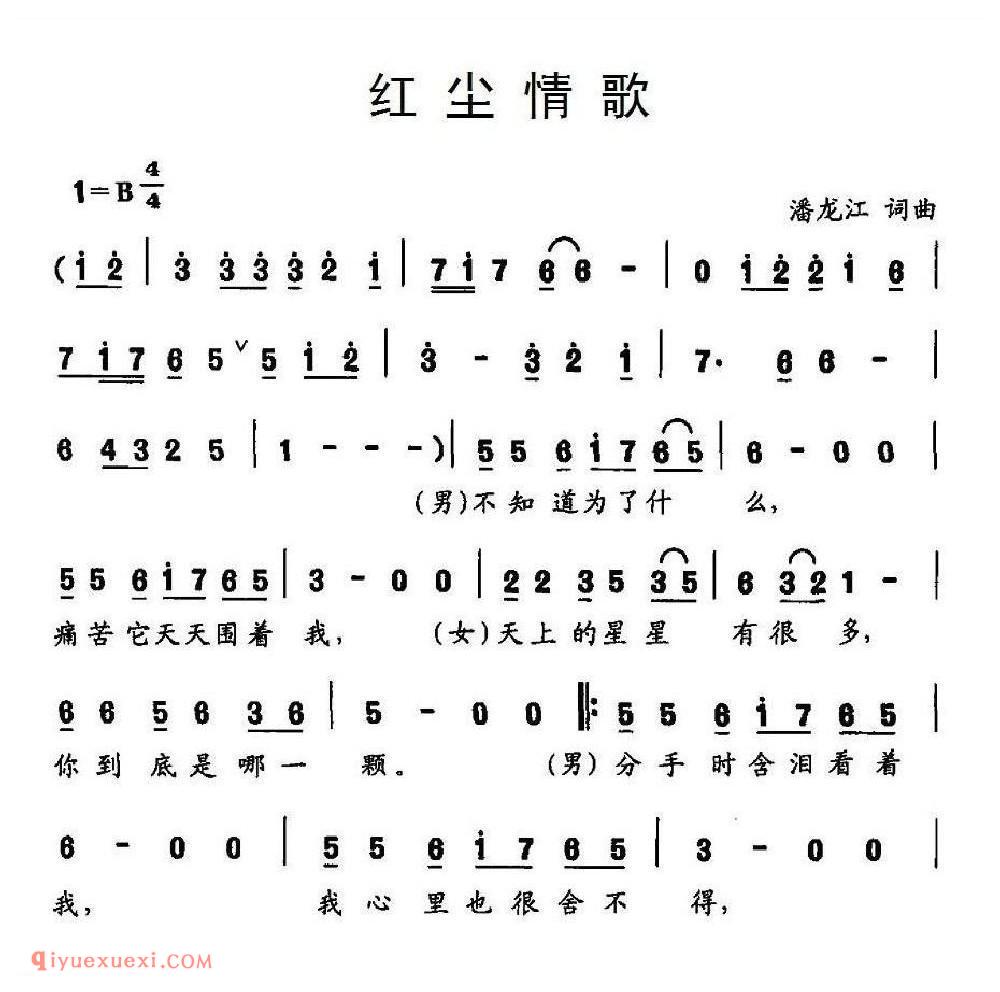 红尘情歌
1=B 4/4
潘龙江 词曲
( 1̇ 2̇ | 3̇ 3̇ 3̇ 3̇ 2̇ 1̇ | 7 1̇ 7 6 6 - | 0 1̇ 2̇ 2̇ 1̇ 6 |
7 1̇ 7 6 5 ∨ 5 1̇ 2̇ | 3̇ - 3̇ 2̇ 1̇ | 7. 6 6 - |
6 4 3 2 5 | 1 - - - ) | 5 5 6 1̇ 7 6 5 | 6 - 0 0 |
(男)不知道为了什么,
5 5 6 1̇ 7 6 5 | 3 - 0 0 | 2 2 3 5 3 5 | 6 3 2 1 - |
痛苦它天天围着我, (女)天上的星星 有很多,
6 6 5 6 3 6 | 5 - 0 0 ‖: 5 5 6 1̇ 7 6 5 |
你到底是哪一颗。 (男)分手时含泪看着
6 - 0 0 | 5 5 6 1̇ 7 6 5 | 3 - 0 0 |
我, 我心里也很舍不得,
qiyuexuexi.COM